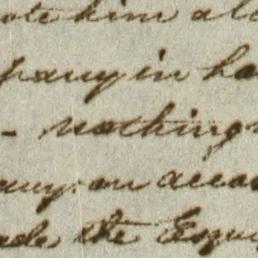 ote him al
pany in ha
- nothing
any on acco
ade the Enqu